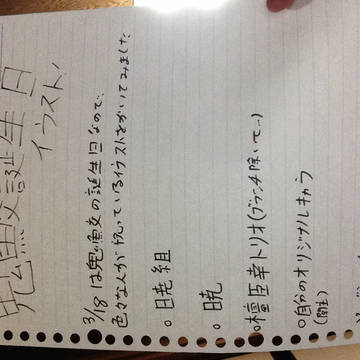 鬼鮫誕生日
イラスト!
3/18は鬼鮫の誕生日なので、
色々な人が祝っているイラストをかいてみました
○日暁組
○暁
○檀臣幸トリオ(ブランチ除いて…)
○自分のオリジナルキャラ